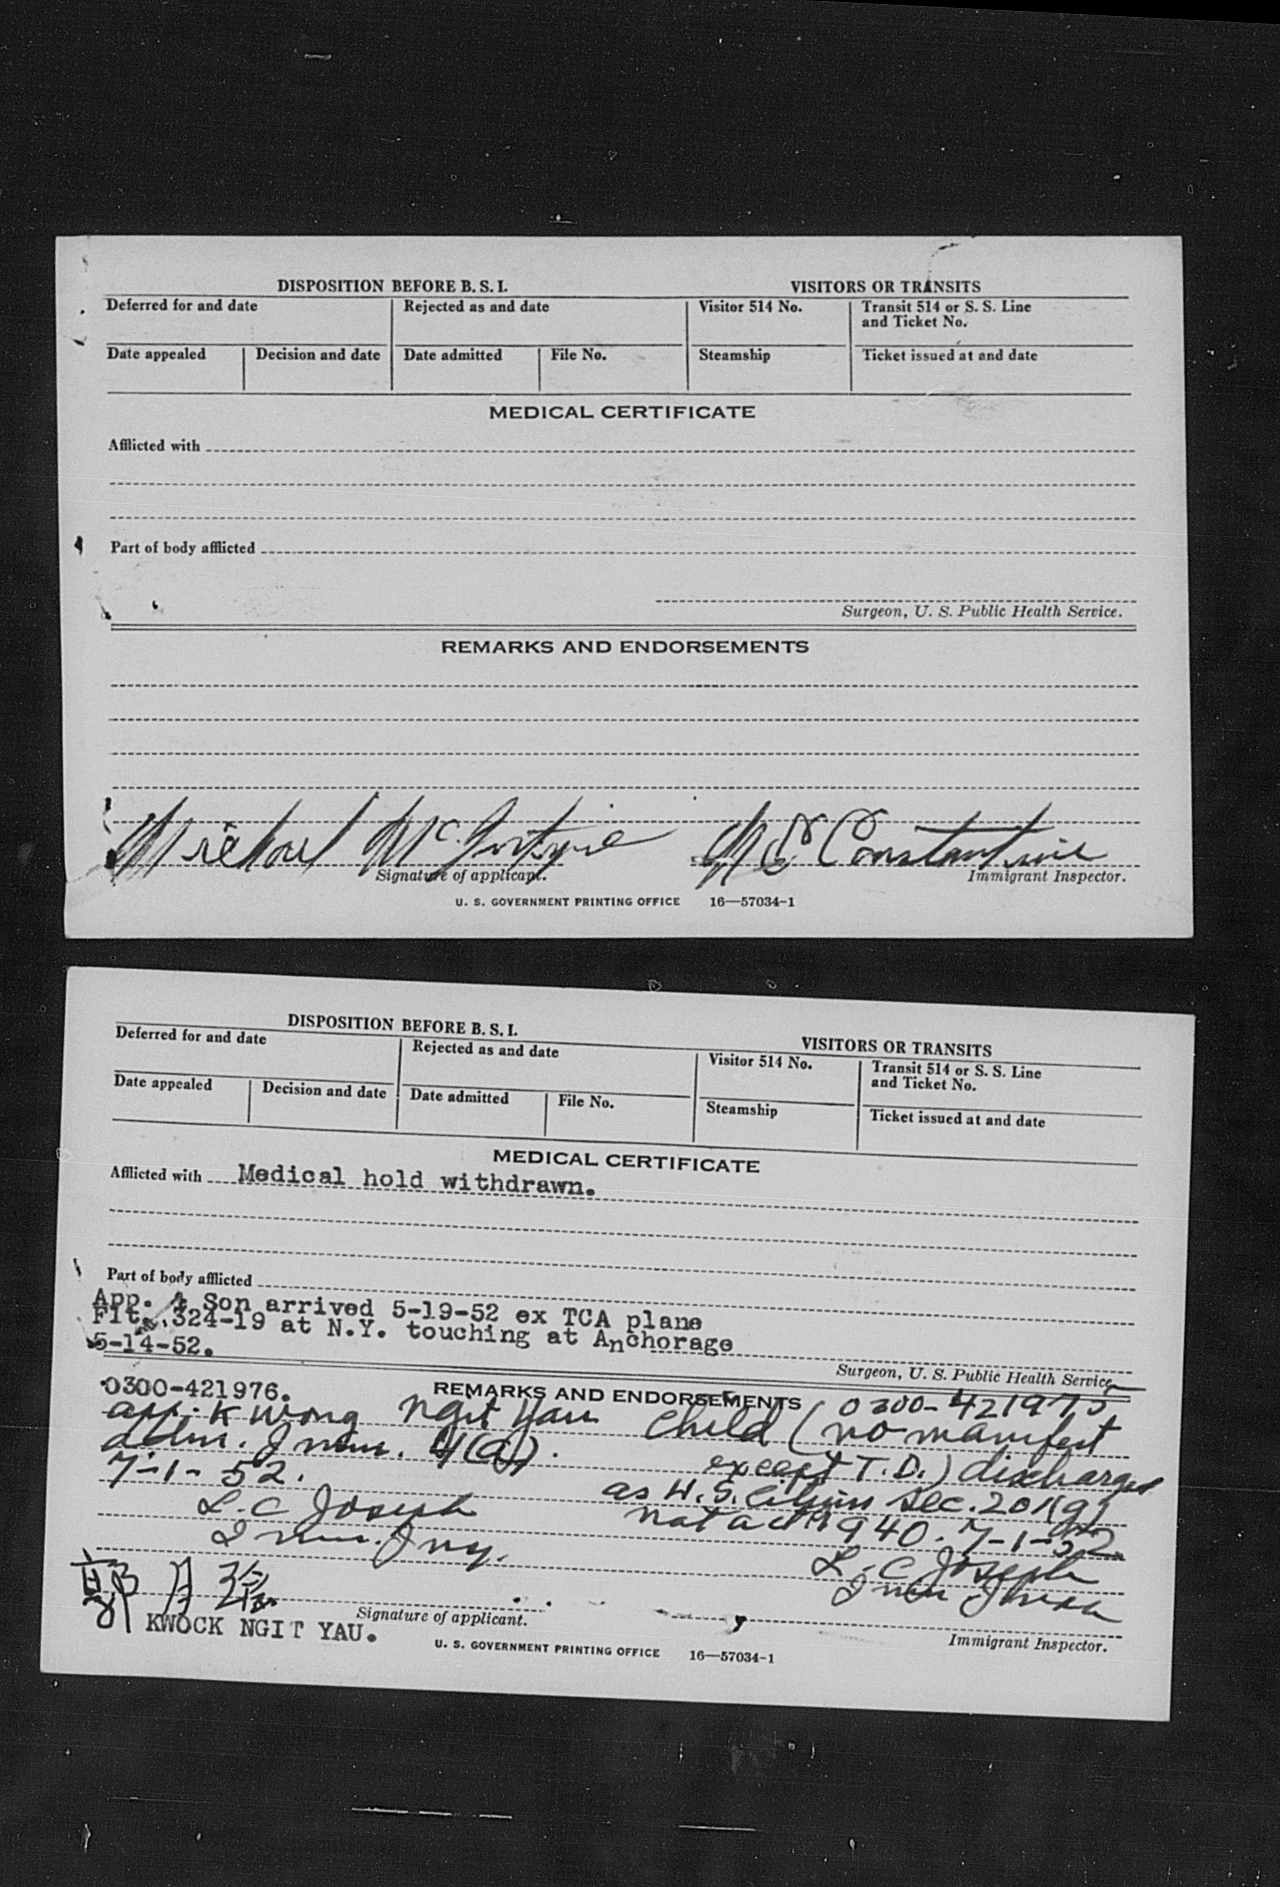 DISPOSITION BEFORE B. S. I.
VISITORS OR TRANSITS
Deferred for and date
Rejected as and date
Visitor 514 No.
Transit 514 or S. S. Line
and Ticket No.
Date appealed
Decision and date
Date admitted
File No.
Steamship
Ticket issued at and date
MEDICAL CERTIFICATE
Afflicted with
Part of body afflicted
Surgeon, U. S. Public Health Service.
REMARKS AND ENDORSEMENTS
Michael McIntyre
Constantine
Signature of applicant.
Immigrant Inspector.
U. S. GOVERNMENT PRINTING OFFICE 16—57034-1
DISPOSITION BEFORE B. S. I.
VISITORS OR TRANSITS
Deferred for and date
Rejected as and date
Visitor 514 No.
Transit 514 or S. S. Line
and Ticket No.
Date appealed
Decision and date
Date admitted
File No.
Steamship
Ticket issued at and date
MEDICAL CERTIFICATE
Afflicted with Medical hold withdrawn.
Part of body afflicted
App. & Son arrived 5-19-52 ex TCA plane
Flt. 324-19 at N.Y. touching at Anchorage
5-14-52.
Surgeon, U. S. Public Health Service.
0300-421976.
REMARKS AND ENDORSEMENTS
0300-421975
app. Kwong Ngit Yau
Child (no manifest
adm. Imm. 4(a).
except T.D.) discharged
7-1-52.
as U.S. Citizen Sec. 201(g)
Nat act 1940. 7-1-52
L. C. Joseph
Imm. Insp.
L. C. Joseph
郭月
Signature of applicant.
KWOCK NGIT YAU.
Immigrant Inspector.
U. S. GOVERNMENT PRINTING OFFICE 16—57034-1